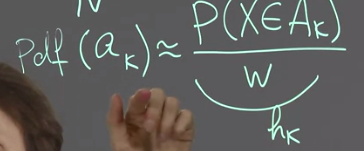 N
pdf (a_k) ≈ P(X∈A_k) / W
h_k